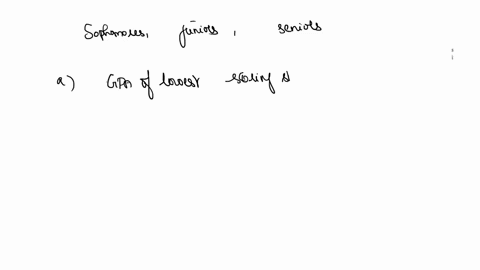 Sophomores, juniors, seniors
a) GPA of lowest scoring s